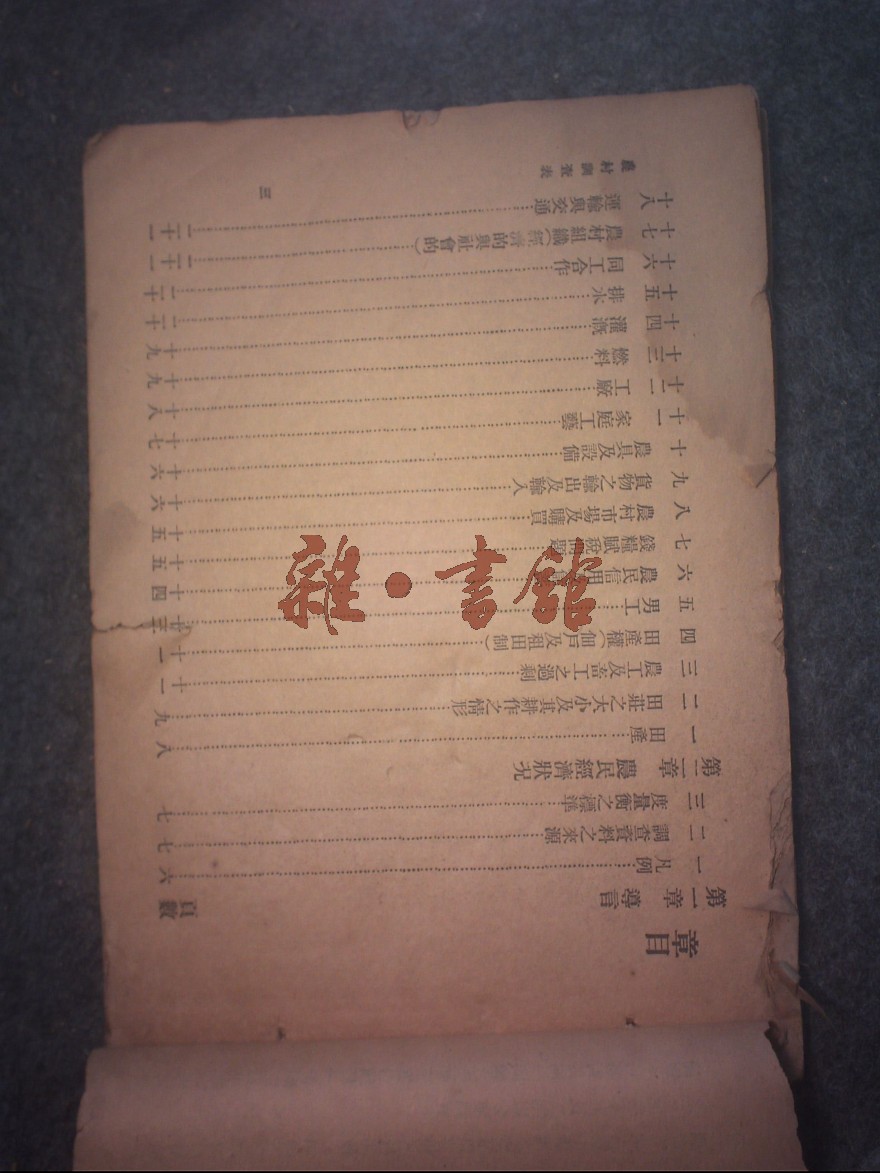 章目
第一章 導言 頁數
一 凡例 六
二 調查資料之來源 七
三 度量衡之標準 七
第二章 農民經濟狀況
一 田產 八
二 田莊之大小及其耕作之情形 九
三 農工及苦工之過剩 十一
四 田產權(佃戶及租田制) 十一
五 男工
六 農民信用 十四
七 錢糧賦稅問題 十五
八 農村市場及購買 十五
九 貨物之輸出及輸入 十六
十 農具及設備 十六
十一 家庭工藝 十七
十二 工廠 十八
十三 燃料 十九
十四 灌溉 十九
十五 排水 二十
十六 同工合作 二十
十七 農村組織(經濟的與社會的) 二十一
十八 運輸與交通 二十一
農村調查表
三
雜·書館